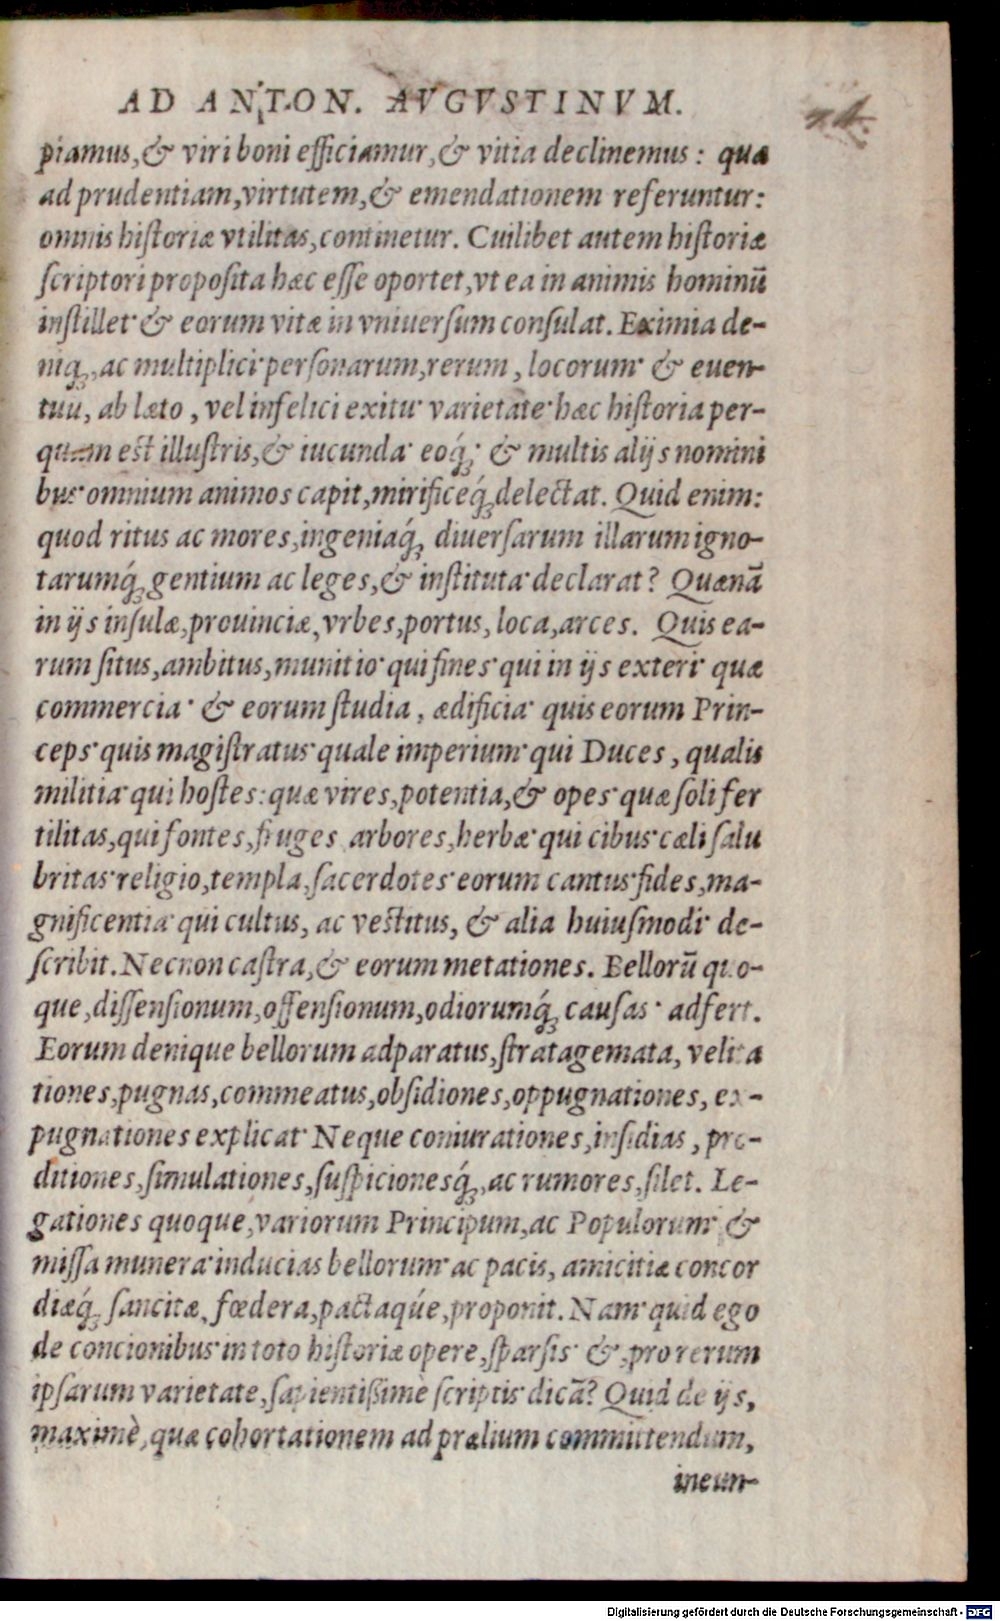 AD ANTON. AVGVSTINVM.
74.
piamus,& viri boni efficiamur,& vitia declinemus: quæ
ad prudentiam,virtutem,& emendationem referuntur:
omnis historiæ vtilitas,continetur. Cuilibet autem historiæ
scriptori proposita hæc esse oportet,vt ea in animis hominū
instillet & eorum vitæ in vniuersum consulat. Eximia de-
niq;,ac multiplici personarum,rerum, locorum & euen-
tuū, ab læto, vel infelici exitu varietate hæc historia per-
quam est illustris,& iucunda eoq́; & multis alijs nomini
bus omnium animos capit,mirificeq́; delectat. Quid enim:
quod ritus ac mores,ingeniaq́; diuersarum illarum igno-
tarumq́; gentium ac leges,& instituta declarat? Quænā
in ijs insulæ,prouinciæ,vrbes,portus, loca,arces. Quis ea-
rum situs,ambitus,munitio qui fines qui in ijs exteri quæ
commercia & eorum studia, ædificia quis eorum Prin-
ceps quis magistratus quale imperium qui Duces, qualis
militia qui hostes:quæ vires,potentia,& opes quæ soli fer
tilitas,qui fontes,fruges arbores,herbæ qui cibus cæli salu
britas religio,templa,sacerdotes eorum cantus fides,ma-
gnificentia qui cultus, ac vestitus, & alia huiusmodi de-
scribit. Necnon castra,& eorum metationes. Bellorū quo-
que,dissensionum,offensionum,odiorumq́; causas adfert.
Eorum denique bellorum adparatus,stratagemata, velita
tiones,pugnas,commeatus,obsidiones,oppugnationes, ex-
pugnationes explicat Neque coniurationes,insidias, pro-
ditiones,simulationes,suspicionesq́;,ac rumores,silet. Le-
gationes quoque,variorum Principum,ac Populorum &
missa munera inducias bellorum ac pacis, amicitiæ concor
diæq́; sancitæ, fœdera,pactaqúe,proponit. Nam quid ego
de concionibus in toto historiæ opere,sparsis &,pro rerum
ipsarum varietate,sapientissimè scriptis dicā? Quid de ijs,
maximè,quæ cohortationem ad prælium committendum,
ineun-
Digitalisierung gefördert durch die Deutsche Forschungsgemeinschaft - DFG